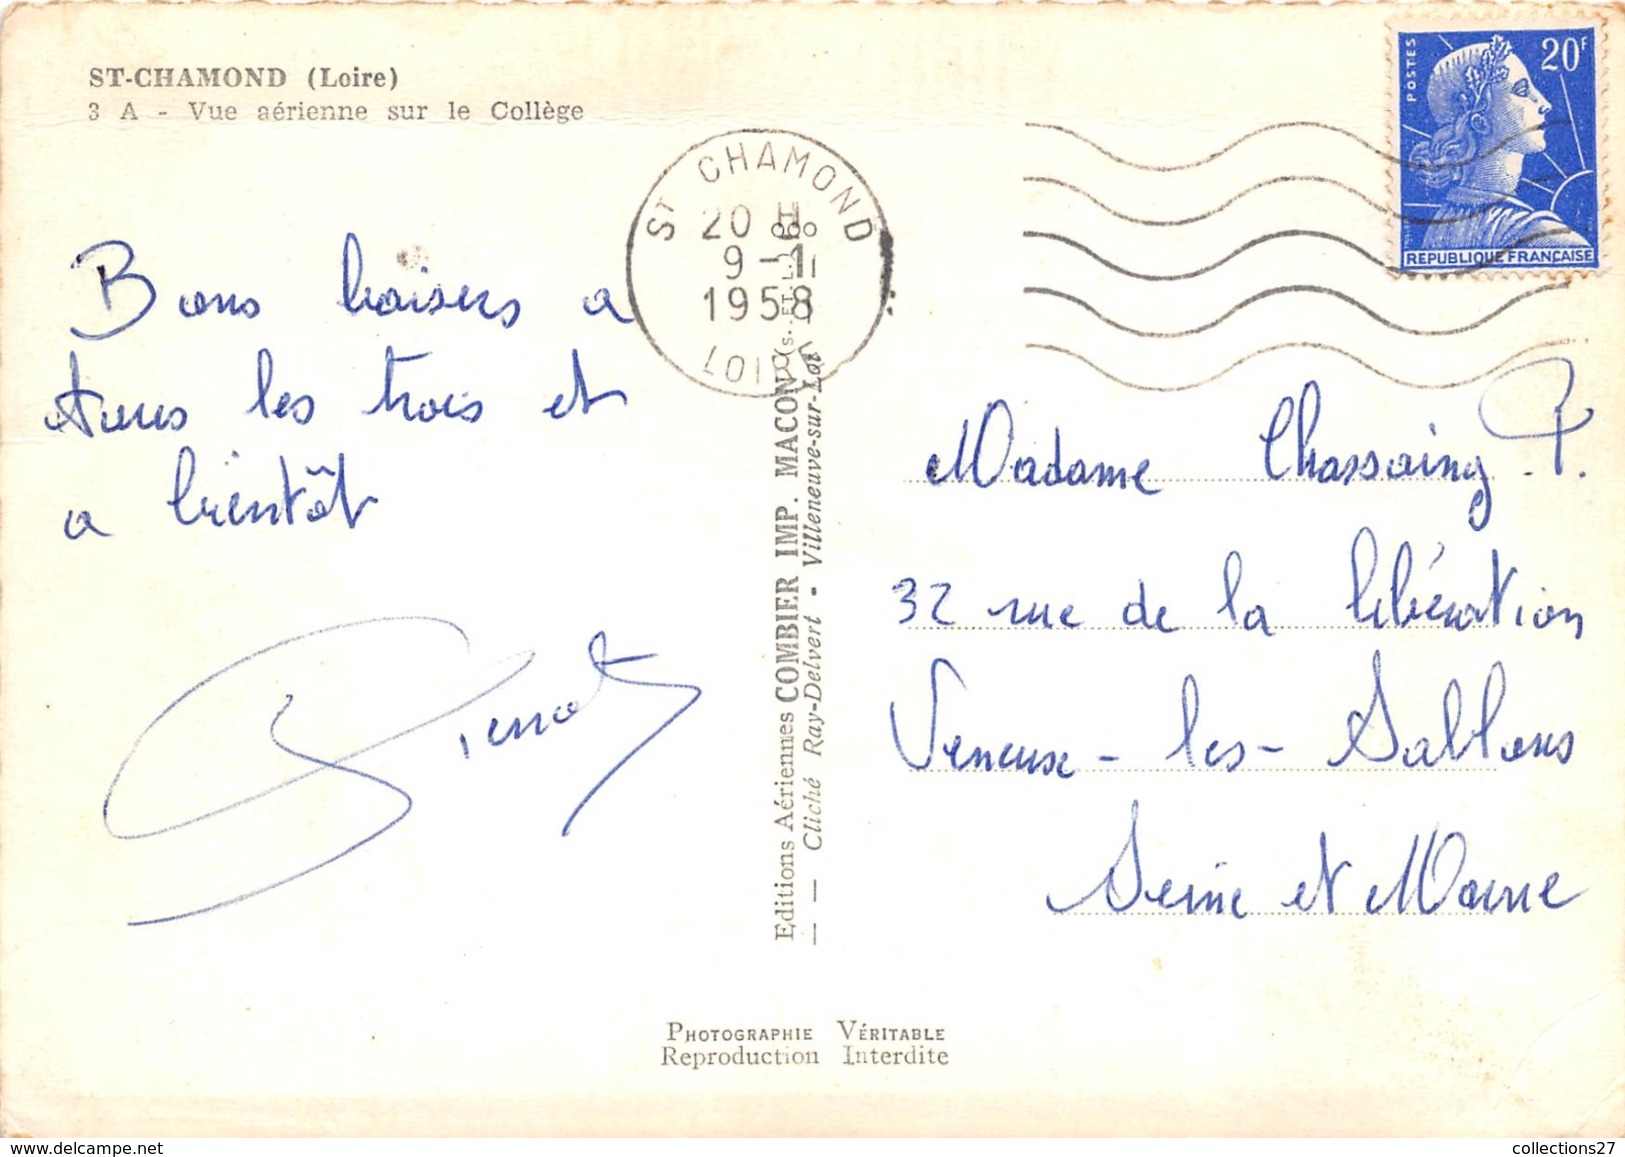 ST-CHAMOND (Loire)
3 A - Vue aérienne sur le Collège
POSTES
20F
REPUBLIQUE FRANÇAISE
ST CHAMOND
20 H
9-1
1958
LOIRE
Bons baisers a
tous les trois et
a bientôt
Pierrot
Editions Aériennes COMBIER IMP. MACON
Cliché Ray-Delvert - Villeneuve-sur-Lot
Madame Chassaing P.
32 rue de la libération
Veneuse-les-Sablons
Seine et Marne
PHOTOGRAPHIE VÉRITABLE
Reproduction Interdite
collections27